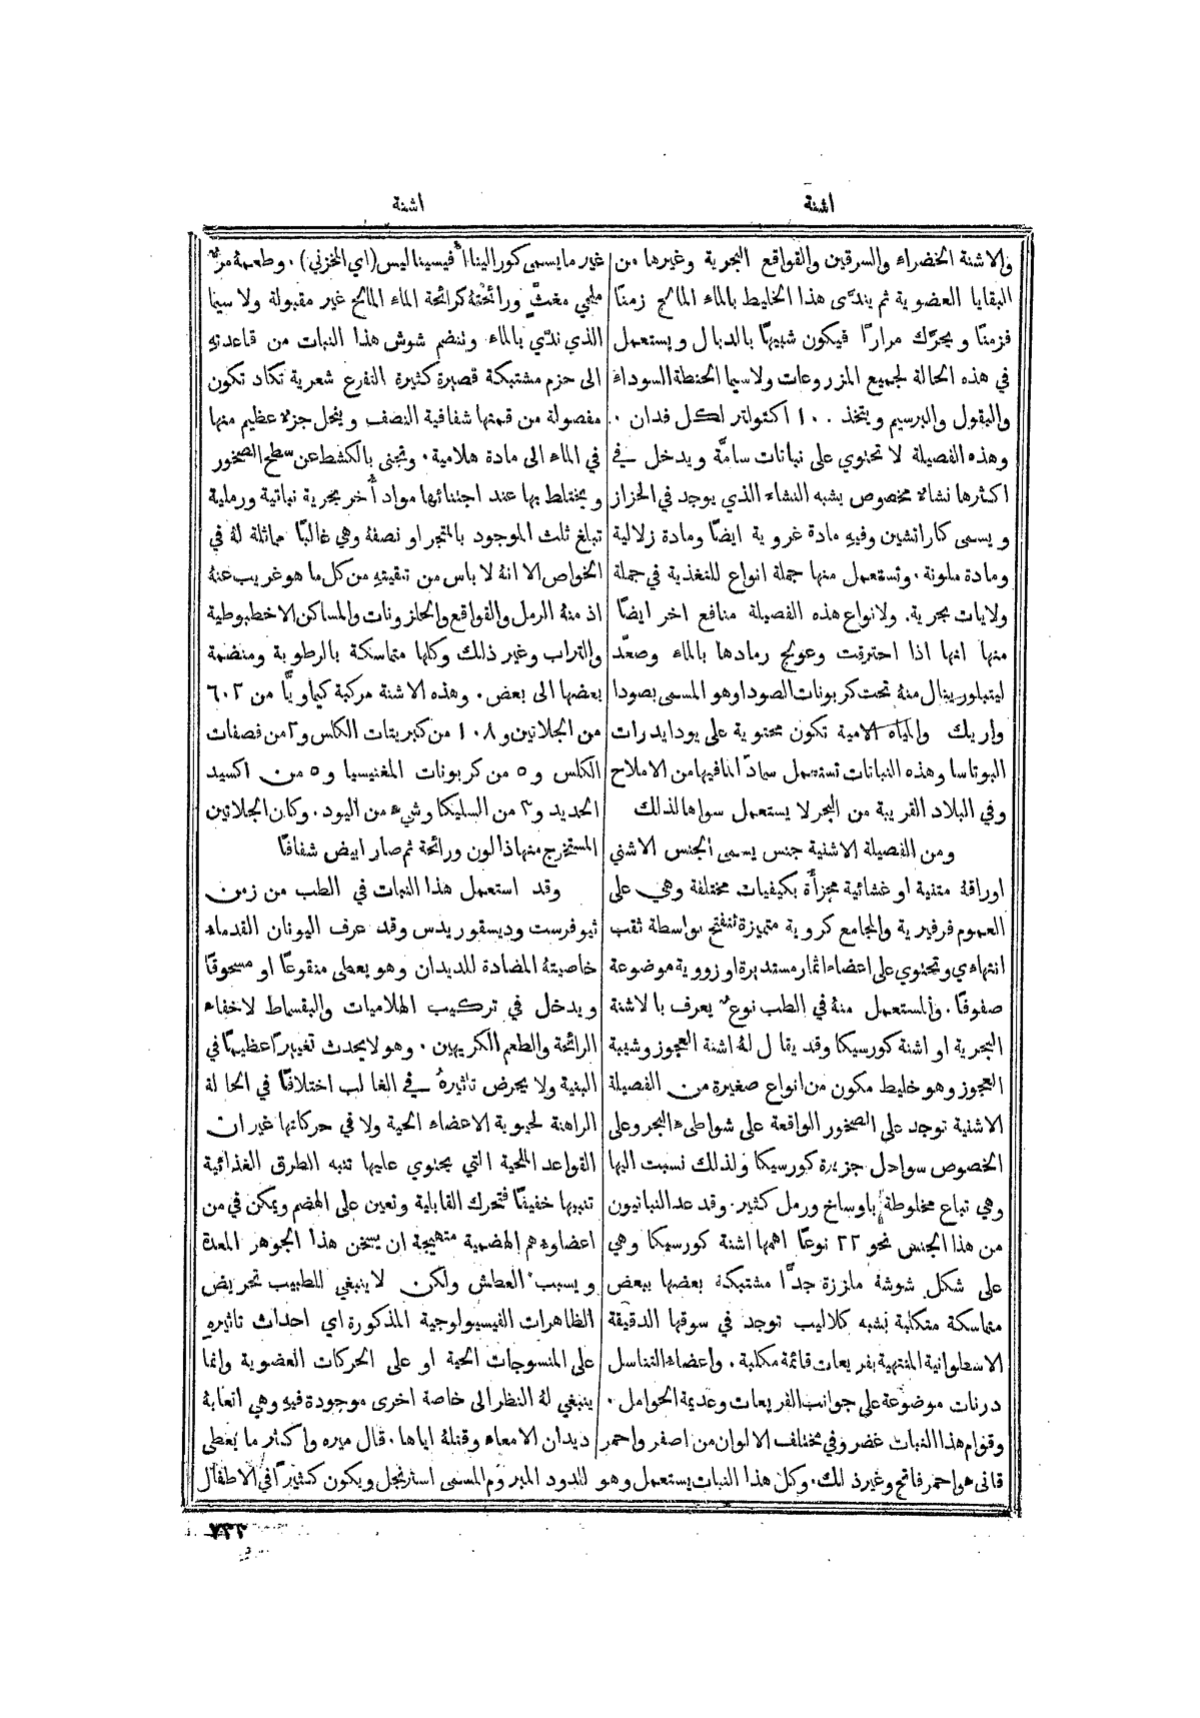 اشنة
اشنة
والاشنة الخضراء والسرقين والقواقع البحرية وغيرها من
البقايا العضوية ثم يندَّى هذا الخليط بالماء المالح زمنًا
فزمنًا ويحرَّك مرارًا فيكون شبيهًا بالدبال ويستعمل
في هذه الحالة لجميع المزروعات ولاسيما الحنطة السوداء
والبقول والبرسيم ويتخذ ١٠٠ اكتولتر لكل فدان ٠
وهذه الفصيلة لا تحتوي على نباتات سامَّة ويدخل في
اكثرها نشاء مخصوص يشبه النشاء الذي يوجد في الحزاز
ويسمى كارانشين وفيهِ مادة غروية ايضًا ومادة زلالية
ومادة ملونة ٠ وتستعمل منها جملة انواع للتغذية في جملة
ولايات بحرية ٠ ولانواع هذه الفصيلة منافع اخر ايضًا
منها انها اذا احترقت وعولج رمادها بالماء وصعّد
ليتبلور ينال منهُ تحت كربونات الصودا وهو المسمى بصودا
واريك والمياه الامية تكون محتوية على يودايدرات
البوتاسا وهذه النباتات تستعمل سمادًا لما فيها من الاملاح
وفي البلاد القريبة من البحر لا يستعمل سواها لذلك
ومن الفصيلة الاشنية جنس يسمى الجنس الاشني
اوراقهُ متنية او غشائية مجزأة بكيفيات مختلفة وهي على
العموم فرفيرية والمجامع كروية متميزة تنفتح بواسطة ثقب
انتهاءي وتحتوي على اعضاء اثمار مستديرة او زووية موضوعة
صفوفًا ٠ والمستعمل منهُ في الطب نوعٌ يعرف بالاشنة
البحرية او اشنة كورسيكا وقد يقال لهُ اشنة العجوز وشيبة
العجوز وهو خليط مكون من انواع صغيرة من الفصيلة
الاشنية توجد على الصخور الواقعة على شواطىء البحر وعلى
الخصوص سواحل جزيرة كورسيكا ولذلك نسبت اليها
وهي تباع مخلوطة باوساخ ورمل كثير ٠ وقد عد النباتيون
من هذا الجنس نحو ٢٢ نوعًا اهمها اشنة كورسيكا وهي
على شكل شوشة ملززة جدًّا مشتبكة بعضها ببعض
متماسكة متكلبة تشبه كلاليب توجد في سوقها الدقيقة
الاسطوانية المنتهية بفريعات قائمة مكلبة ٠ واعضاء التناسل
درنات موضوعة على جوانب الفريعات وعديمة الحوامل ٠
وقوام هذا النبات غضروفي مختلف الالوان من اصفر واحمر
قانى هو واحمر فاتح وغير ذلك ٠ وكل هذا النبات يستعمل وهو
غير ما يسمى كورالينا افيسيناليس (اي المخزني) ٠ وطعمهُ مرٌّ
ملحي مغثٍّ ورائحتهُ كرائحة الماء المالح غير مقبولة ولاسيما
الذي ندّي بالماء وتنضم شوش هذا النبات من قاعدتهِ
الى حزم مشتبكة قصيرة كثيرة التفرع شعرية تكاد تكون
مفصولة من قمتها شفافية النصف وينحل جزء عظيم منها
في الماء الى مادة هلامية ٠ وتجنى بالكشط عن سطح الصخور
ويختلط بها عند اجتنائها مواد أُخر بحرية نباتية ورملية
تبلغ ثلث الموجود بالمتجر او نصفهُ وهي غالبًا مماثلة لهُ في
الخواص الا انهُ لا باس من تنقيتهِ من كل ما هو غريب عنهُ
اذ منهُ الرمل والقواقع والحلزونات والمساكن الاخطبوطية
والتراب وغير ذلك وكلها متماسكة بالرطوبة ومنضمة
بعضها الى بعض ٠ وهذه الاشنة مركبة كيماويًّا من ٦٠٢
من الجلاتين و ١٠٨ من كبريتات الكلس و٢ من فصفات
الكلس و٥ من كربونات المغنيسيا و٥ من اكسيد
الحديد و٢ من السليكا وشيء من اليود ٠ وكان الجلاتين
المستخرج منها ذا لون ورائحة ثم صار ابيض شفافًا
وقد استعمل هذا النبات في الطب من زمن
ثيوفرست وديسقوريدس وقد عرف اليونان القدماء
خاصيتهُ المضادة للديدان وهو يعطى منقوعًا او مسحوقًا
ويدخل في تركيب الهلاميات والبقسماط لاخفاء
الرائحة والطعم الكريهين ٠ وهو لا يحدث تغييرًا عظيمًا في
البنية ولا يحرض تاثيرهُ في الغالب اختلافًا في الحالة
الراهنة لحيوية الاعضاء الحية ولا في حركاتها غير ان
القواعد اللحية التي يحتوي عليها تنبه الطرق الغذائية
تنبيهًا خفيفًا فتحرك القابلية وتعين على الهضم ويمكن في من
اعضاوءهم الهضمية متهيجة ان يسخن هذا الجوهر المعدة
ويسبب العطش ولكن لا ينبغي للطبيب تحريض
الظاهرات الفيسيولوجية المذكورة اي احداث تاثيرهِ
على المنسوجات الحية او على الحركات العضوية وانما
ينبغي لهُ النظر الى خاصة اخرى موجودة فيهِ وهي اتعابهُ
ديدان الامعاء وقتلهُ اياها ٠ قال ميره واكثر ما يعطى
للدود المبروم المسمى استرنجل ويكون كثيرًا في الاطفال
٢٣٢